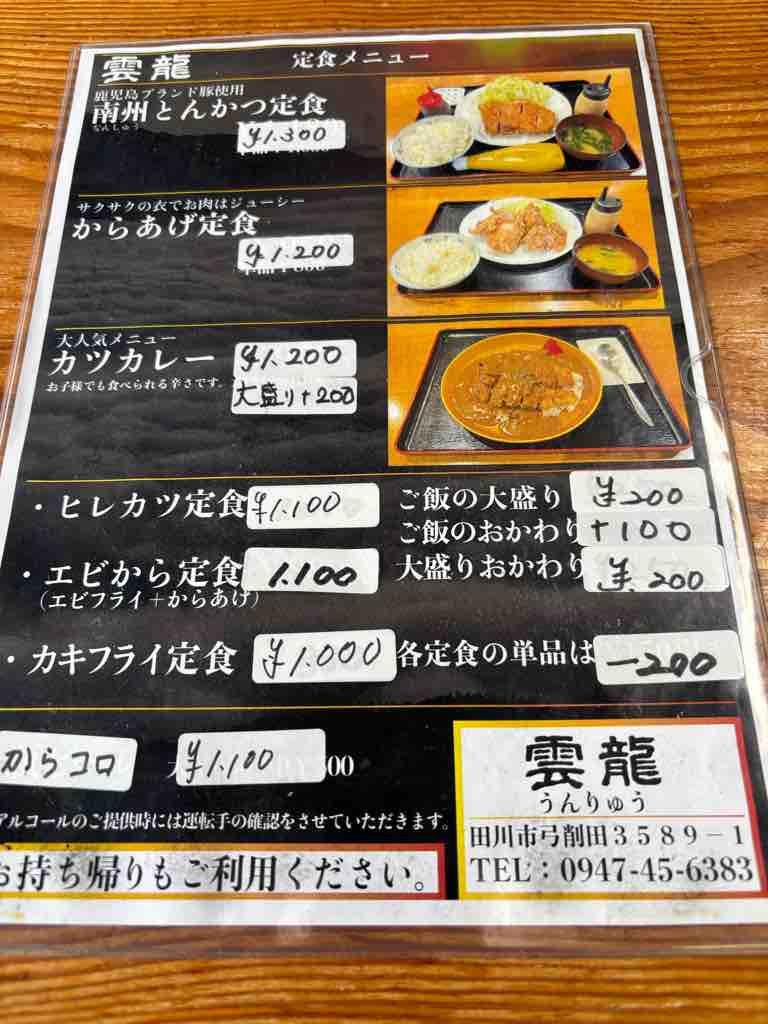 雲龍 定食メニュー
鹿児島ブランド豚使用
南州とんかつ定食
なんしゅう
¥1.300
サクサクの衣でお肉はジューシー
からあげ定食
¥1.200
大人気メニュー
カツカレー ¥1.200
お子様でも食べられる辛さです。 大盛り+200
・ヒレカツ定食 ¥1.100 ご飯の大盛り ¥200
ご飯のおかわり +100
・エビから定食 1.100 大盛りおかわり ¥.200
(エビフライ+からあげ)
・カキフライ定食 ¥1.000 各定食の単品は -200
からコロ ¥1.100
アルコールのご提供時には運転手の確認をさせていただきます。
お持ち帰りもご利用ください。
雲龍
うんりゅう
田川市弓削田3589-1
TEL:0947-45-6383